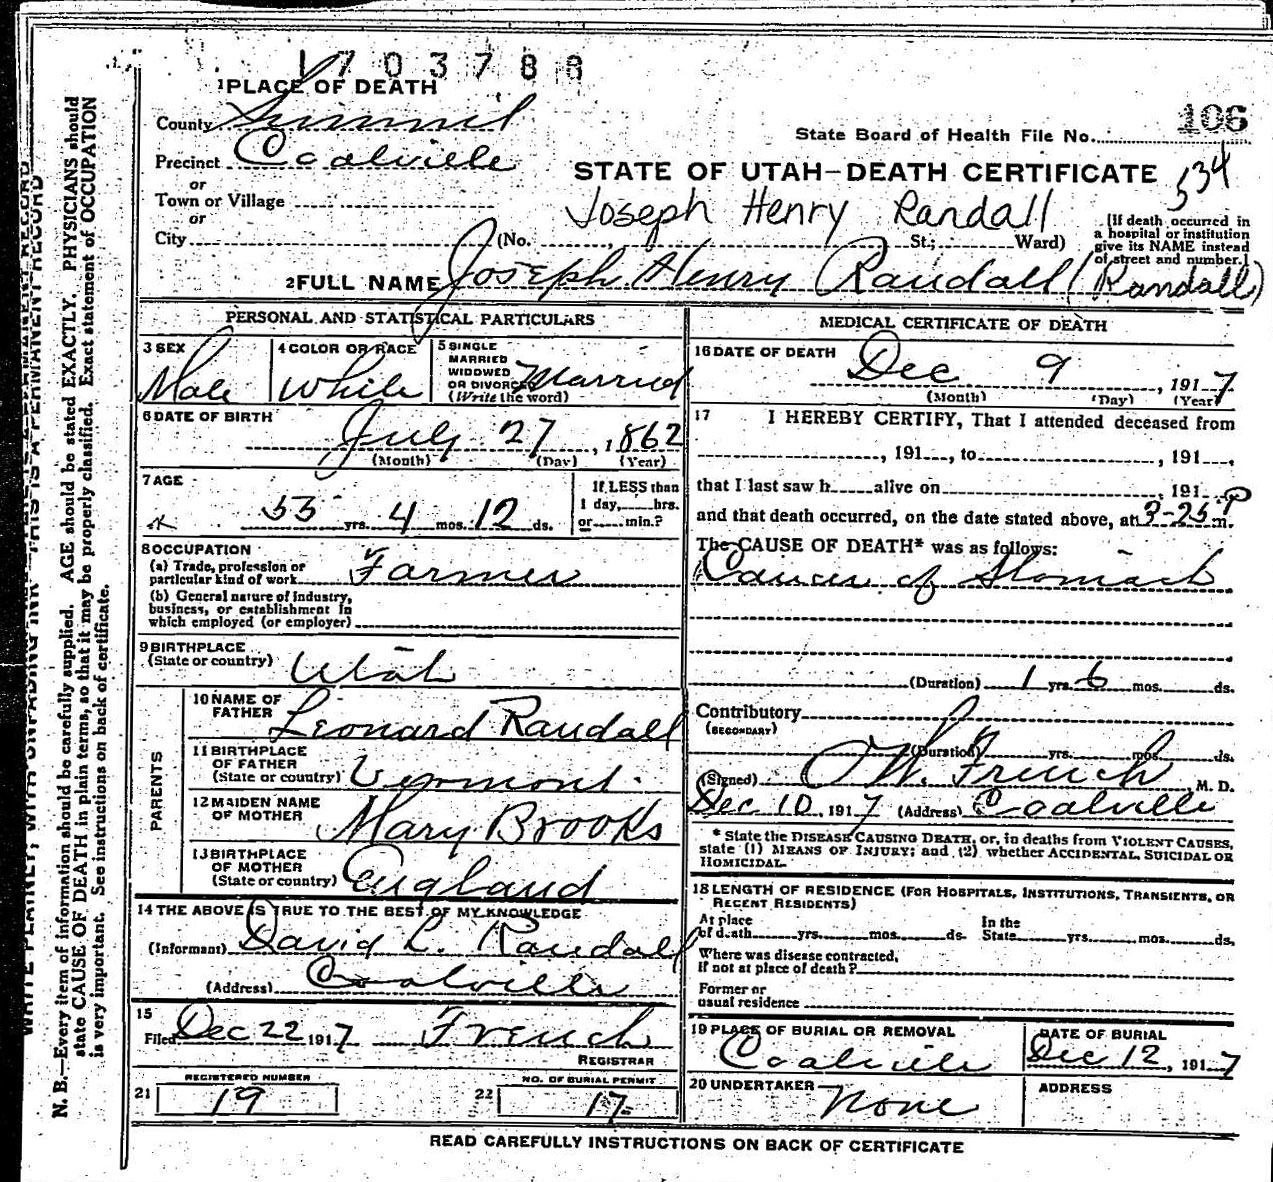 1703788
1 PLACE OF DEATH
County Summit
State Board of Health File No. 106
Precinct Coalville
STATE OF UTAH—DEATH CERTIFICATE 534
or
Town or Village
Joseph Henry Randall
or
City (No. St.; Ward)
(If death occurred in
a hospital or institution
give its NAME instead
of street and number.)
2 FULL NAME Joseph Henry Randall (Randall)
PERSONAL AND STATISTICAL PARTICULARS
3 SEX Male
4 COLOR OR RACE White
5 SINGLE
MARRIED
WIDOWED
OR DIVORCED Married
(Write the word)
6 DATE OF BIRTH
July 27, 1862
(Month) (Day) (Year)
7 AGE
55 yrs. 4 mos. 12 ds.
If LESS than
1 day, hrs.
or min.?
8 OCCUPATION
(a) Trade, profession or
particular kind of work Farmer
(b) General nature of industry,
business, or establishment in
which employed (or employer)
9 BIRTHPLACE
(State or country) Utah
PARENTS
10 NAME OF
FATHER Leonard Randall
11 BIRTHPLACE
OF FATHER
(State or country) Vermont.
12 MAIDEN NAME
OF MOTHER Mary Brooks
13 BIRTHPLACE
OF MOTHER
(State or country) England
14 THE ABOVE IS TRUE TO THE BEST OF MY KNOWLEDGE
(Informant) David L. Randall
(Address) Coalville
15
Filed Dec 22 1917 French
REGISTRAR
21 REGISTERED NUMBER
19
22 NO. OF BURIAL PERMIT
17
MEDICAL CERTIFICATE OF DEATH
16 DATE OF DEATH Dec 9, 1917
(Month) (Day) (Year)
17 I HEREBY CERTIFY, That I attended deceased from
, 191 , to , 191 ,
that I last saw h alive on , 191
and that death occurred, on the date stated above, at 3-25 P m.
The CAUSE OF DEATH* was as follows:
Cancer of Stomach
(Duration) 1 yrs. 6 mos. ds.
Contributory
(SECONDARY)
(Duration) yrs. mos. ds.
(Signed) French, M. D.
Dec 10, 1917 (Address) Coalville
* State the DISEASE CAUSING DEATH, or, in deaths from VIOLENT CAUSES,
state (1) MEANS OF INJURY; and (2) whether ACCIDENTAL, SUICIDAL OR
HOMICIDAL.
18 LENGTH OF RESIDENCE (FOR HOSPITALS, INSTITUTIONS, TRANSIENTS, OR
RECENT RESIDENTS)
At place
of death yrs. mos. ds.
In the
State yrs. mos. ds.
Where was disease contracted,
if not at place of death?
Former or
usual residence
19 PLACE OF BURIAL OR REMOVAL
Coalville
DATE OF BURIAL
Dec 12, 1917
20 UNDERTAKER
None
ADDRESS
READ CAREFULLY INSTRUCTIONS ON BACK OF CERTIFICATE
WRITE PLAINLY, WITH UNFADING INK—THIS IS A PERMANENT RECORD
N. B.—Every item of information should be carefully supplied. AGE should be stated EXACTLY. PHYSICIANS should
state CAUSE OF DEATH in plain terms, so that it may be properly classified. Exact statement of OCCUPATION
is very important. See instructions on back of certificate.